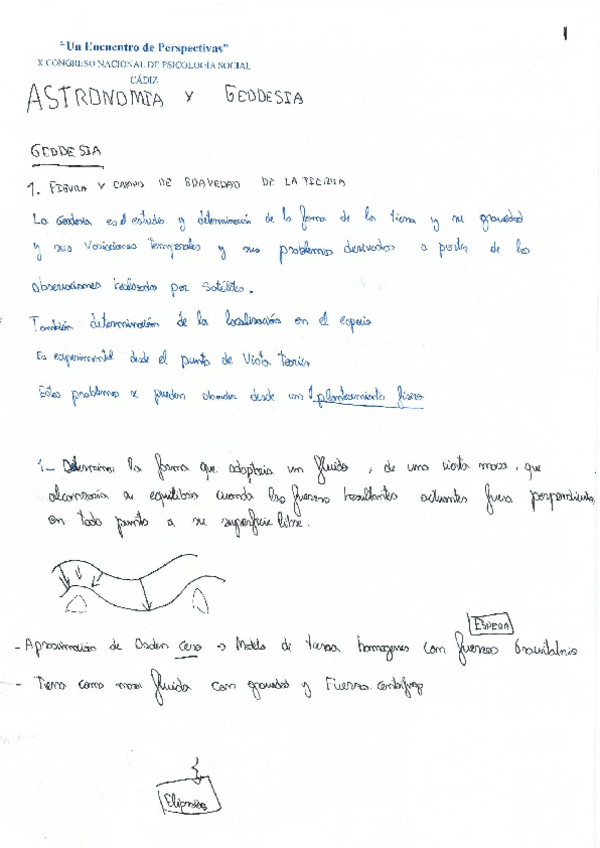 1
"Un Encuentro de Perspectivas"
X CONGRESO NACIONAL DE PSICOLOGÍA SOCIAL
CÁDIZ
ASTRONOMIA Y GEODESIA
GEODESIA
1. FIGURA Y CAMPO DE GRAVEDAD DE LA TIERRA
La Geodesia es el estudio y determinación de la forma de la tierra y su gravedad
y sus variaciones temporales y sus problemas derivados a partir de las
observaciones realizadas por satélites.
También determinación de la localización en el espacio
Es experimental desde el punto de vista teorico
Estos problemas se pueden abordar desde un 1 planteamiento físico
1- Determinar la forma que adoptaria un fluido, de una cierta masa, que
alcanzaria su equilibrio cuando las fuerzas resultantes actuantes fuera perpendicular
en todo punto a su superficie libre.
ESFERA
- Aproximación de Orden cero → Modelo de tierra homogenea con fuerzas Gravitatoria
- Tierra como masa fluida con gravedad y Fuerza centrifuga
Elipsoide